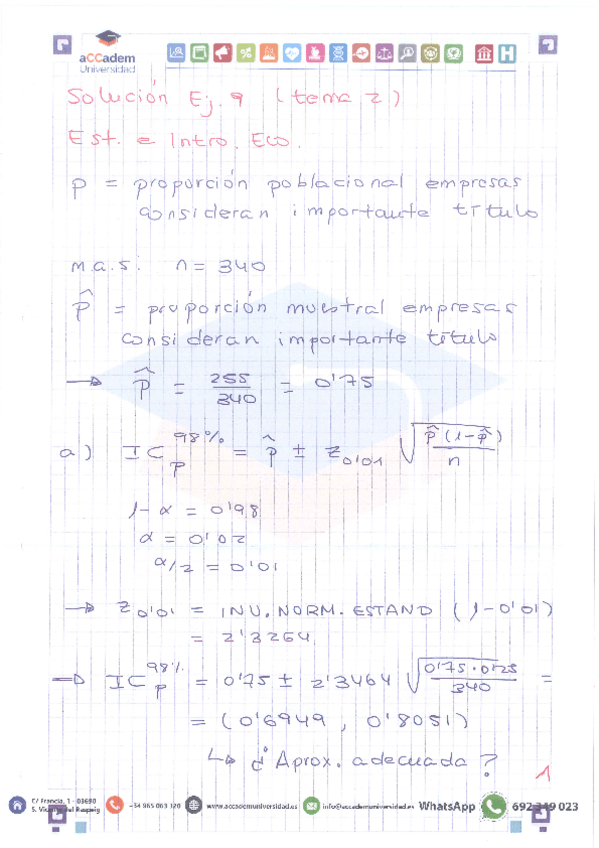 aCCadem
Universidad
Solución Ej. 9 (tema 2)
Est. e Intro. Eco.
p = proporción poblacional empresas
consideran importante título
m.a.s: n = 340
p̂ = proporción muestral empresas
consideran importante título
→ p̂ = 255/340 = 0'75
a) IC_p^98% = p̂ ± z_0'01 √(p̂(1-p̂)/n)
1-α = 0'98
α = 0'02
α/2 = 0'01
→ z_0'01 = INV. NORM. ESTAND (1-0'01)
= 2'3264
⇒ IC_p^98% = 0'75 ± 2'3464 √(0'75·0'25/340) =
= (0'6949, 0'8051)
↳ ¿Aprox. adecuada?
1
C/ Francia, 1 - 03690
S. Vicente del Raspeig
+34 965 063 120
www.accademuniversidad.es
info@accademuniversidad.es
WhatsApp
692 349 023